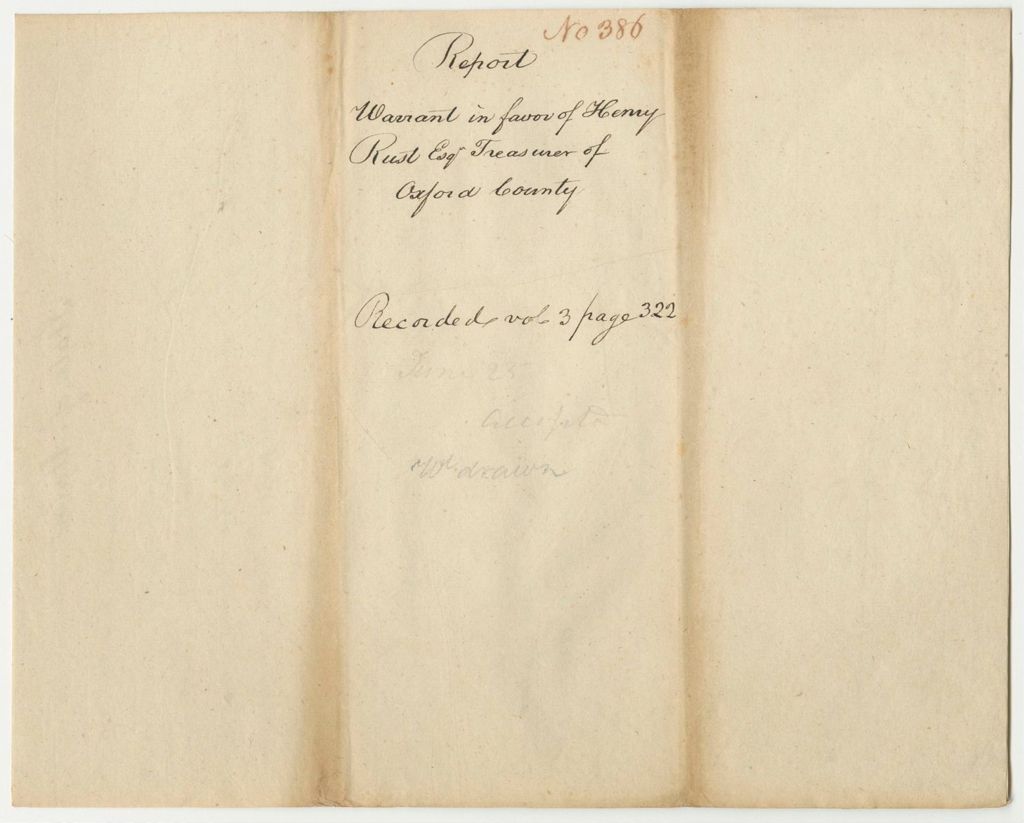 No 386
Report
Warrant in favor of Henry
Rust Esqr Treasurer of
Oxford County
Recorded vol. 3 page 322
June 25
Accepted
Wt. drawn